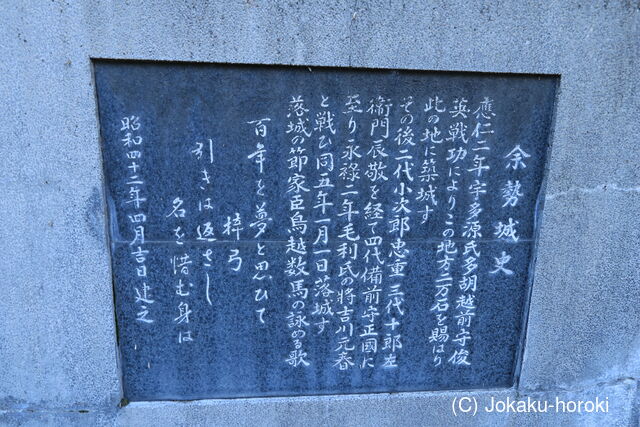 余勢城史
應仁二年宇多源氏多胡越前守俊
英戦功によりこの地方三万石を賜はり
此の地に築城す
その後二代小次郎忠重三代十郎左
衛門辰敬を経て四代備前守正國に
至り永禄二年毛利氏の将吉川元春
と戦ひ同五年一月一日落城す
落城の節家臣鳥越数馬の詠める歌
百年を夢と思ひて
梓弓
引きは返さし
名を惜む身は
昭和四十二年四月吉日建之
(C) Jokaku-horoki